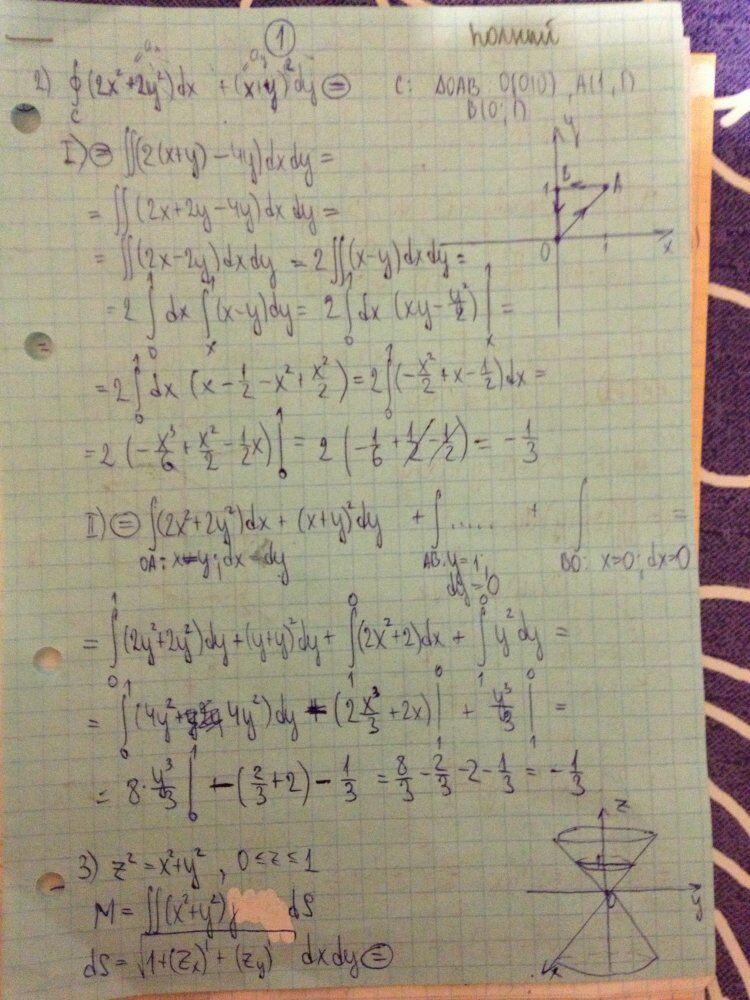 ① полный
2) ∮_C (2x²+2y²)dx + (x+y)²dy ⊜ C: ΔOAB O(0;0), A(1,1)
B(0;1)
I) ⊜ ∬(2(x+y) - 4y)dxdy =
= ∬(2x+2y-4y)dxdy =
= ∬(2x-2y)dxdy = 2∬(x-y)dxdy =
= 2∫₀¹dx ∫ₓ¹(x-y)dy = 2∫₀¹dx (xy - y²/2)|ₓ¹ =
= 2∫₀¹dx (x - 1/2 - x² + x²/2) = 2∫₀¹(-x²/2 + x - 1/2)dx =
= 2(-x³/6 + x²/2 - 1/2x)|₀¹ = 2(-1/6 + 1/2 - 1/2) = -1/3
y
1 B A
0 1 x
II) ⊜ ∫(2x²+2y²)dx + (x+y)²dy + ∫..... + ∫ =
OA: x=y; dx=dy AB: y=1, BO: x=0; dx=0
dy=0
= ∫₀¹(2y²+2y²)dy + (y+y)²dy + ∫₁⁰(2x²+2)dx + ∫₁⁰y²dy =
= ∫₀¹(4y²+4y²)dy + (2x³/3 + 2x)|₁⁰ + y³/3|₁⁰ =
= 8·y³/3|₀¹ - (2/3+2) - 1/3 = 8/3 - 2/3 - 2 - 1/3 = -1/3
3) z² = x²+y², 0≤z≤1
M = ∬(x²+y²) dS
dS = √(1+(z_x)²+(z_y)²) dxdy ⊜
z
1
0 y
x